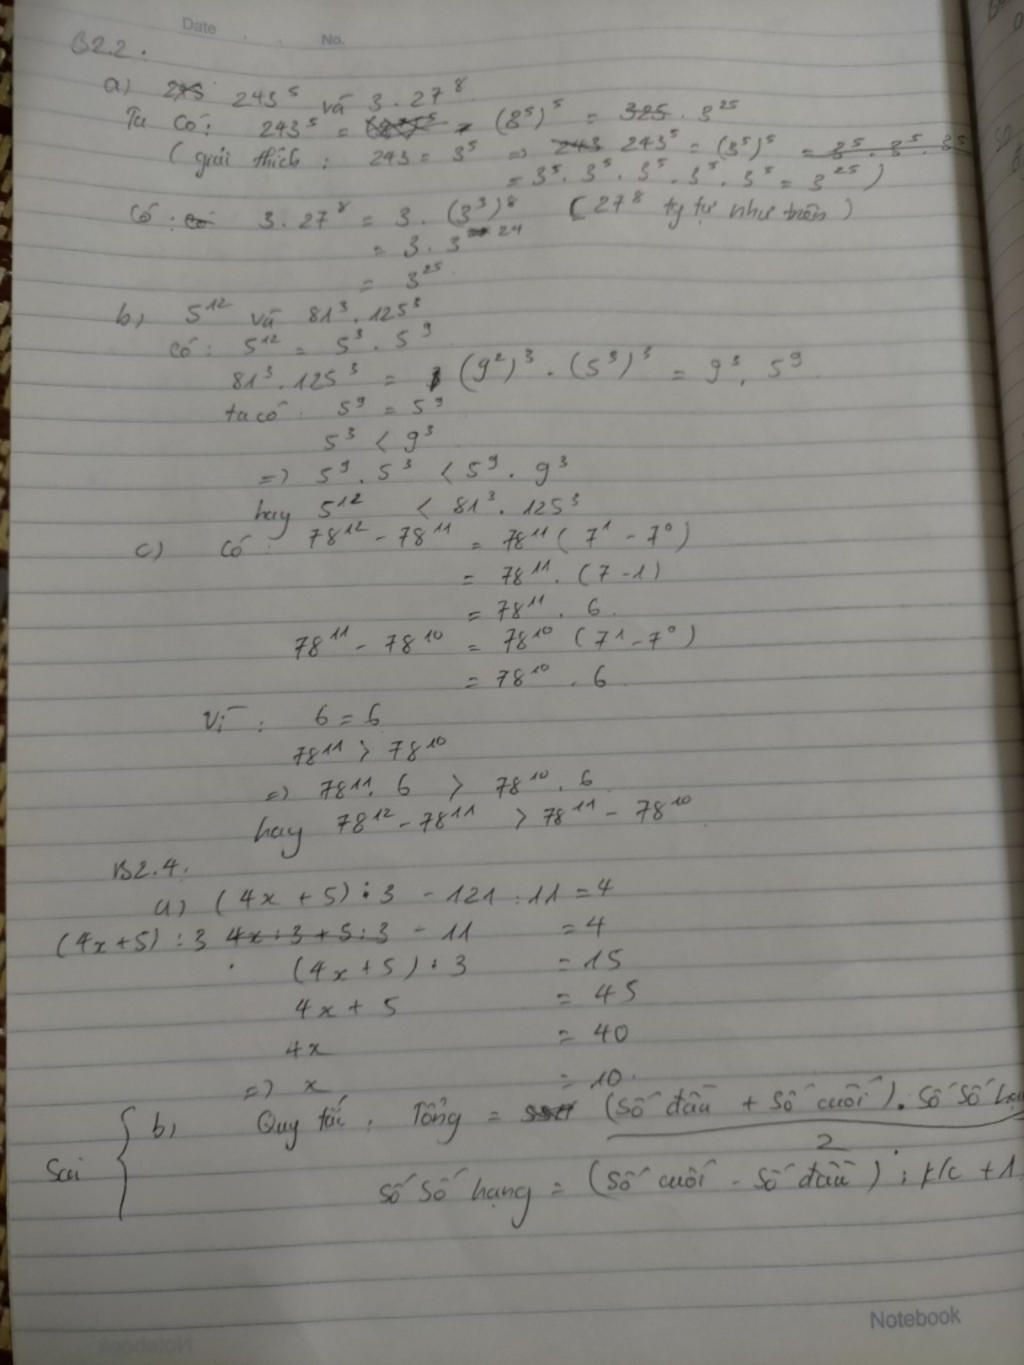 Date . . No.
B2.2.
a) 243 243⁵ và 3 . 27⁸
Ta có: 243⁵ = (3⁵)⁵ = 325 . 3²⁵
(giải thích: 243 = 3⁵ => 243 243⁵ = (3⁵)⁵ = 3⁵ . 3⁵ . 3⁵
= 3⁵ . 3⁵ . 3⁵ . 3⁵ . 3⁵ = 3²⁵)
Có: có 3 . 27⁸ = 3 . (3³)⁸ (27⁸ tự như trên)
= 3 . 3²⁴
= 3²⁵
b) 5¹² và 81³ . 125³
Có: 5¹² = 5³ . 5⁹
81³ . 125³ = (9²)³ . (5³)³ = 9³ . 5⁹
ta có: 5⁹ = 5⁹
5³ < 9³
=> 5⁹ . 5³ < 5⁹ . 9³
hay 5¹² < 81³ . 125³
c) Có: 78¹² - 78¹¹ = 78¹¹ (7¹ - 7⁰)
= 78¹¹ . (7 - 1)
= 78¹¹ . 6
78¹¹ - 78¹⁰ = 78¹⁰ (7¹ - 7⁰)
= 78¹⁰ . 6
Vì: 6 = 6
78¹¹ > 78¹⁰
=> 78¹¹ . 6 > 78¹⁰ . 6
hay 78¹² - 78¹¹ > 78¹¹ - 78¹⁰
B2.4.
a) (4x + 5) : 3 - 121 : 11 = 4
(4x + 5) : 3 4x : 3 + 5 : 3 - 11 = 4
(4x + 5) : 3 = 15
4x + 5 = 45
4x = 40
=> x = 10.
b) Quy tắc: Tổng = (Số đầu + Số cuối) . Số Số
2
Sai
Số Số hạng = (Số cuối - Số đầu) : k/c + 1
Notebook